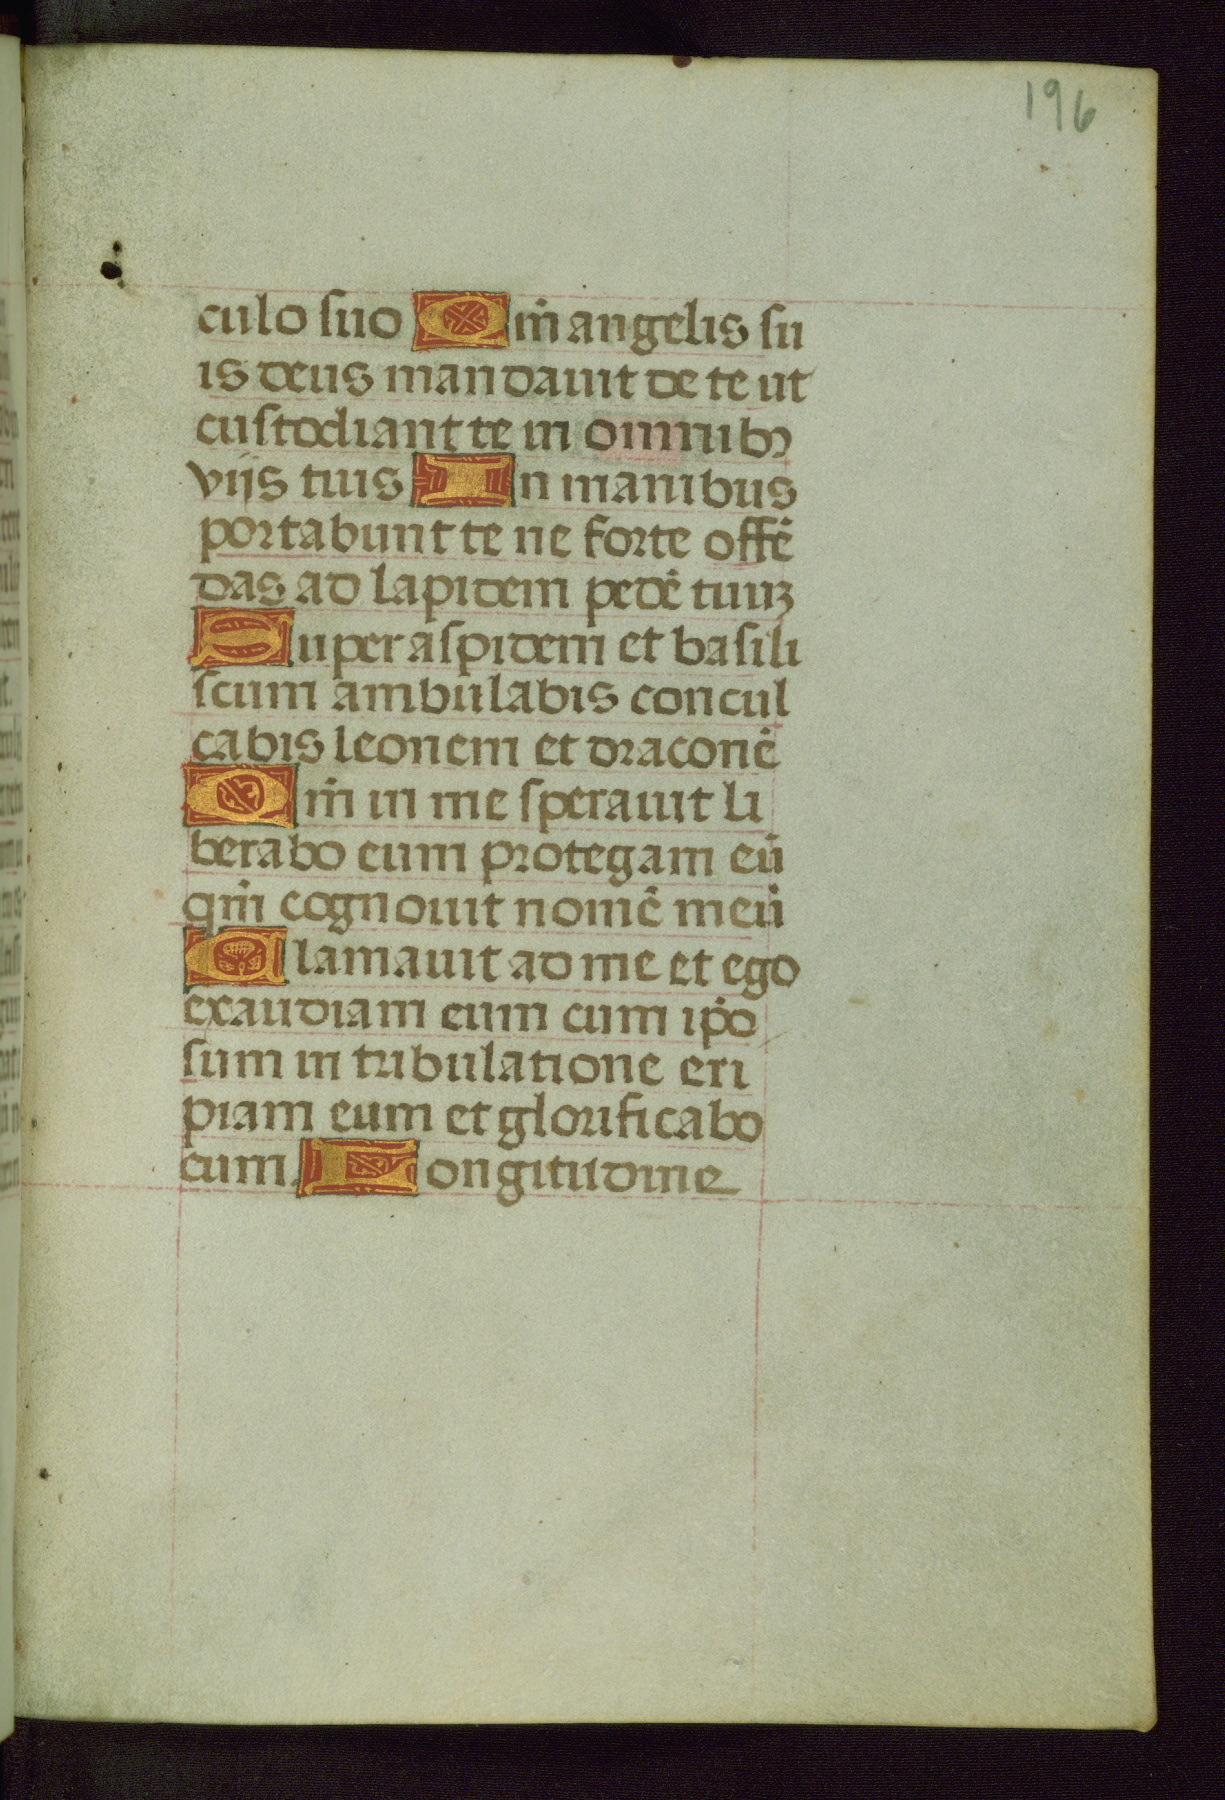 196
culo suo Qm̄ angelis su
is deus mandavit de te ut
custodiant te in omnibꝫ
viis tuis In manibus
portabunt te ne forte offē
das ad lapidem pedē tuuꝫ
Super aspidem et basili
scum ambulabis concul
cabis leonem et draconē
Qm̄ in me speravit li
berabo eum protegam eū
qm̄ cognovit nomē meū
Clamavit ad me et ego
exaudiam eum cum ip̄o
sum in tribulatione eri
piam eum et glorificabo
eum. Longitudine